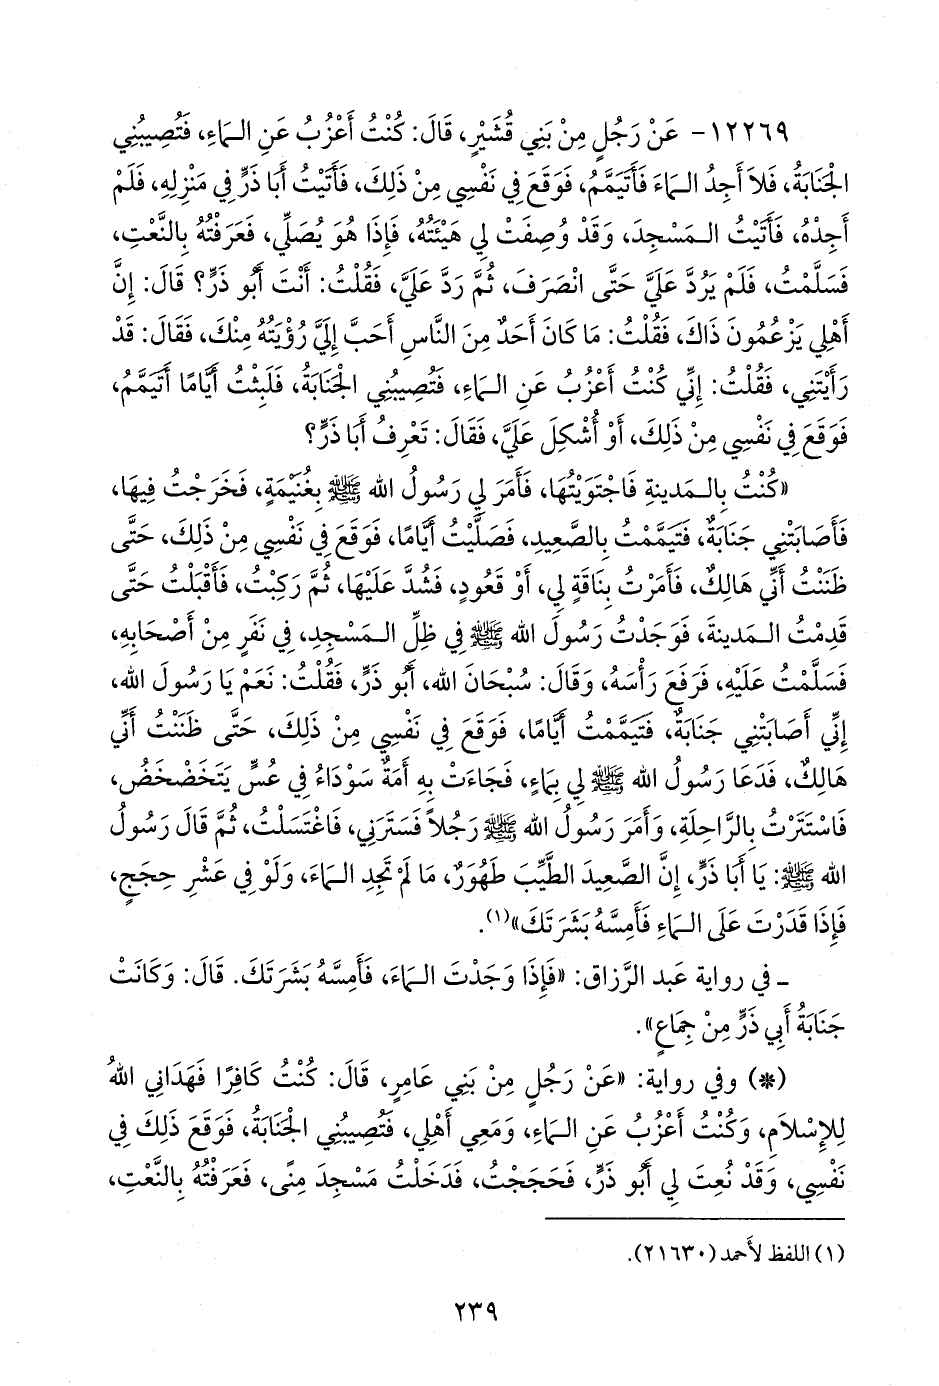 ١٢٢٦٩- عَنْ رَجُلٍ مِنْ بَنِي قُشَيْرٍ، قَالَ: كُنْتُ أَعْزُبُ عَنِ الـمَاءِ، فَتُصِيبُنِي
الجَنَابَةُ، فَلاَ أَجِدُ الـمَاءَ فَأَتَيَمَّمُ، فَوَقَعَ فِي نَفْسِي مِنْ ذَلِكَ، فَأَتَيْتُ أَبَا ذَرٍّ فِي مَنْزِلِهِ، فَلَمْ
أَجِدْهُ، فَأَتَيْتُ الـمَسْجِدَ، وَقَدْ وُصِفَتْ لِي هَيْئَتُهُ، فَإِذَا هُوَ يُصَلِّي، فَعَرَفْتُهُ بِالنَّعْتِ،
فَسَلَّمْتُ، فَلَمْ يَرُدَّ عَلَيَّ حَتَّى انْصَرَفَ، ثُمَّ رَدَّ عَلَيَّ، فَقُلْتُ: أَنْتَ أَبُو ذَرٍّ؟ قَالَ: إِنَّ
أَهْلِي يَزْعُمُونَ ذَاكَ، فَقُلْتُ: مَا كَانَ أَحَدٌ مِنَ النَّاسِ أَحَبَّ إِلَيَّ رُؤْيَتُهُ مِنْكَ، فَقَالَ: قَدْ
رَأَيْتَنِي، فَقُلْتُ: إِنِّي كُنْتُ أَعْزُبُ عَنِ الـمَاءِ، فَتُصِيبُنِي الجَنَابَةُ، فَلَبِثْتُ أَيَّامًا أَتَيَمَّمُ،
فَوَقَعَ فِي نَفْسِي مِنْ ذَلِكَ، أَوْ أُشْكِلَ عَلَيَّ، فَقَالَ: تَعْرِفُ أَبَا ذَرٍّ؟
«كُنْتُ بِالـمَدِينةِ فَاجْتَوَيْتُهَا، فَأَمَرَ لِي رَسُولُ الله ﷺ بِغُنَيْمَةٍ، فَخَرَجْتُ فِيهَا،
فَأَصَابَتْنِي جَنَابَةٌ، فَتَيَمَّمْتُ بِالصَّعِيدِ، فَصَلَّيْتُ أَيَّامًا، فَوَقَعَ فِي نَفْسِي مِنْ ذَلِكَ، حَتَّى
ظَنَنْتُ أَنِّي هَالِكٌ، فَأَمَرْتُ بِنَاقَةٍ لِي، أَوْ قَعُودٍ، فَشُدَّ عَلَيْهَا، ثُمَّ رَكِبْتُ، فَأَقْبَلْتُ حَتَّى
قَدِمْتُ الـمَدِينةَ، فَوَجَدْتُ رَسُولَ الله ﷺ فِي ظِلِّ الـمَسْجِدِ، فِي نَفَرٍ مِنْ أَصْحَابِهِ،
فَسَلَّمْتُ عَلَيْهِ، فَرَفَعَ رَأْسَهُ، وَقَالَ: سُبْحَانَ الله، أَبُو ذَرٍّ، فَقُلْتُ: نَعَمْ يَا رَسُولَ الله،
إِنِّي أَصَابَتْنِي جَنَابَةٌ، فَتَيَمَّمْتُ أَيَّامًا، فَوَقَعَ فِي نَفْسِي مِنْ ذَلِكَ، حَتَّى ظَنَنْتُ أَنِّي
هَالِكٌ، فَدَعَا رَسُولُ الله ﷺ لِي بِمَاءٍ، فَجَاءَتْ بِهِ أَمَةٌ سَوْدَاءُ فِي عُسٍّ يَتَخَضْخَضُ،
فَاسْتَتَرْتُ بِالرَّاحِلَةِ، وَأَمَرَ رَسُولُ الله ﷺ رَجُلاً فَسَتَرَنِي، فَاغْتَسَلْتُ، ثُمَّ قَالَ رَسُولُ
الله ﷺ: يَا أَبَا ذَرٍّ، إِنَّ الصَّعِيدَ الطَّيِّبَ طَهُورٌ، مَا لَمْ تَجِدِ الـمَاءَ، وَلَوْ فِي عَشْرِ حِجَجٍ،
فَإِذَا قَدَرْتَ عَلَى الـمَاءِ فَأَمِسَّهُ بَشَرَتَكَ»(١).
ـ في رواية عَبد الرَّزاق: «فَإِذَا وَجَدْتَ الـمَاءَ، فَأَمِسَّهُ بَشَرَتَكَ. قَالَ: وَكَانَتْ
جَنَابَةُ أَبِي ذَرٍّ مِنْ جِمَاعٍ».
(*) وفي رواية: «عَنْ رَجُلٍ مِنْ بَنِي عَامِرٍ، قَالَ: كُنْتُ كَافِرًا فَهَدَانِي اللهُ
لِلإِسْلاَمِ، وَكُنْتُ أَعْزُبُ عَنِ الـمَاءِ، وَمَعِي أَهْلِي، فَتُصِيبُنِي الجَنَابَةُ، فَوَقَعَ ذَلِكَ فِي
نَفْسِي، وَقَدْ نُعِتَ لِي أَبُو ذَرٍّ، فَحَجَجْتُ، فَدَخَلْتُ مَسْجِدَ مِنًى، فَعَرَفْتُهُ بِالنَّعْتِ،
(١) اللفظ لأَحمد (٢١٦٣٠).
٢٣٩